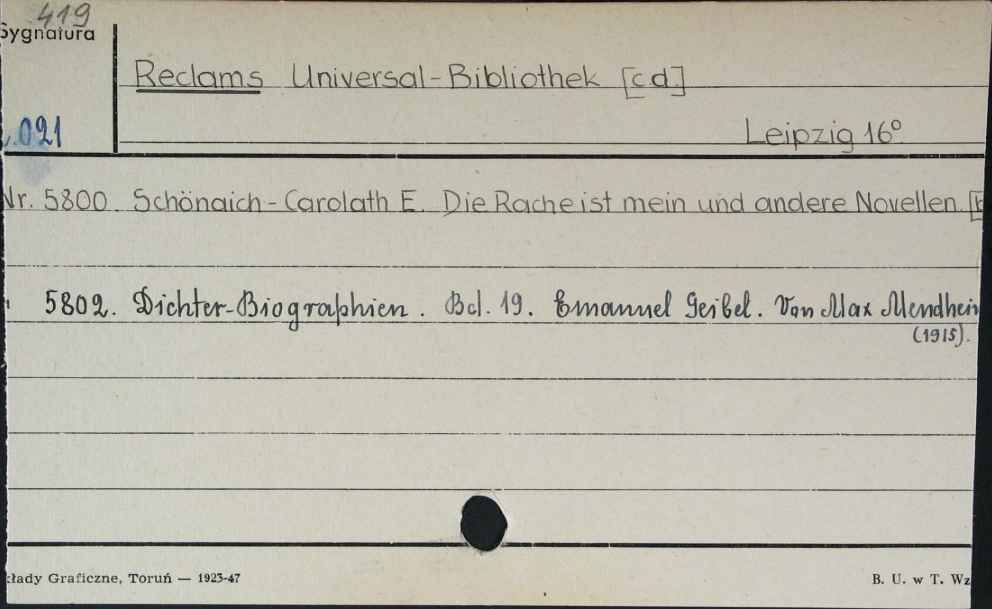 419
Sygnatura
Reclams Universal-Bibliothek [cd.]
.021
Leipzig 16º.
Nr. 5800. Schönaich-Carolath E. Die Rache ist mein und andere Novellen.
5802. Dichter-Biographien. Bd. 19. Emanuel Geibel. Von Max Mendheim
(1915).
kłady Graficzne, Toruń — 1923-47
B. U. w T. Wz